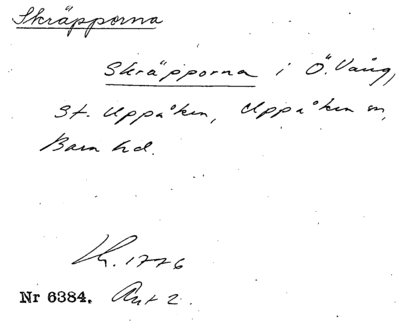 Skräpporna
Skräpporna i Ö. Vång,
St. Uppåkra, Uppåkra sn,
Bara hd.
Lh. 1776
Nr 6384. Akt 2.